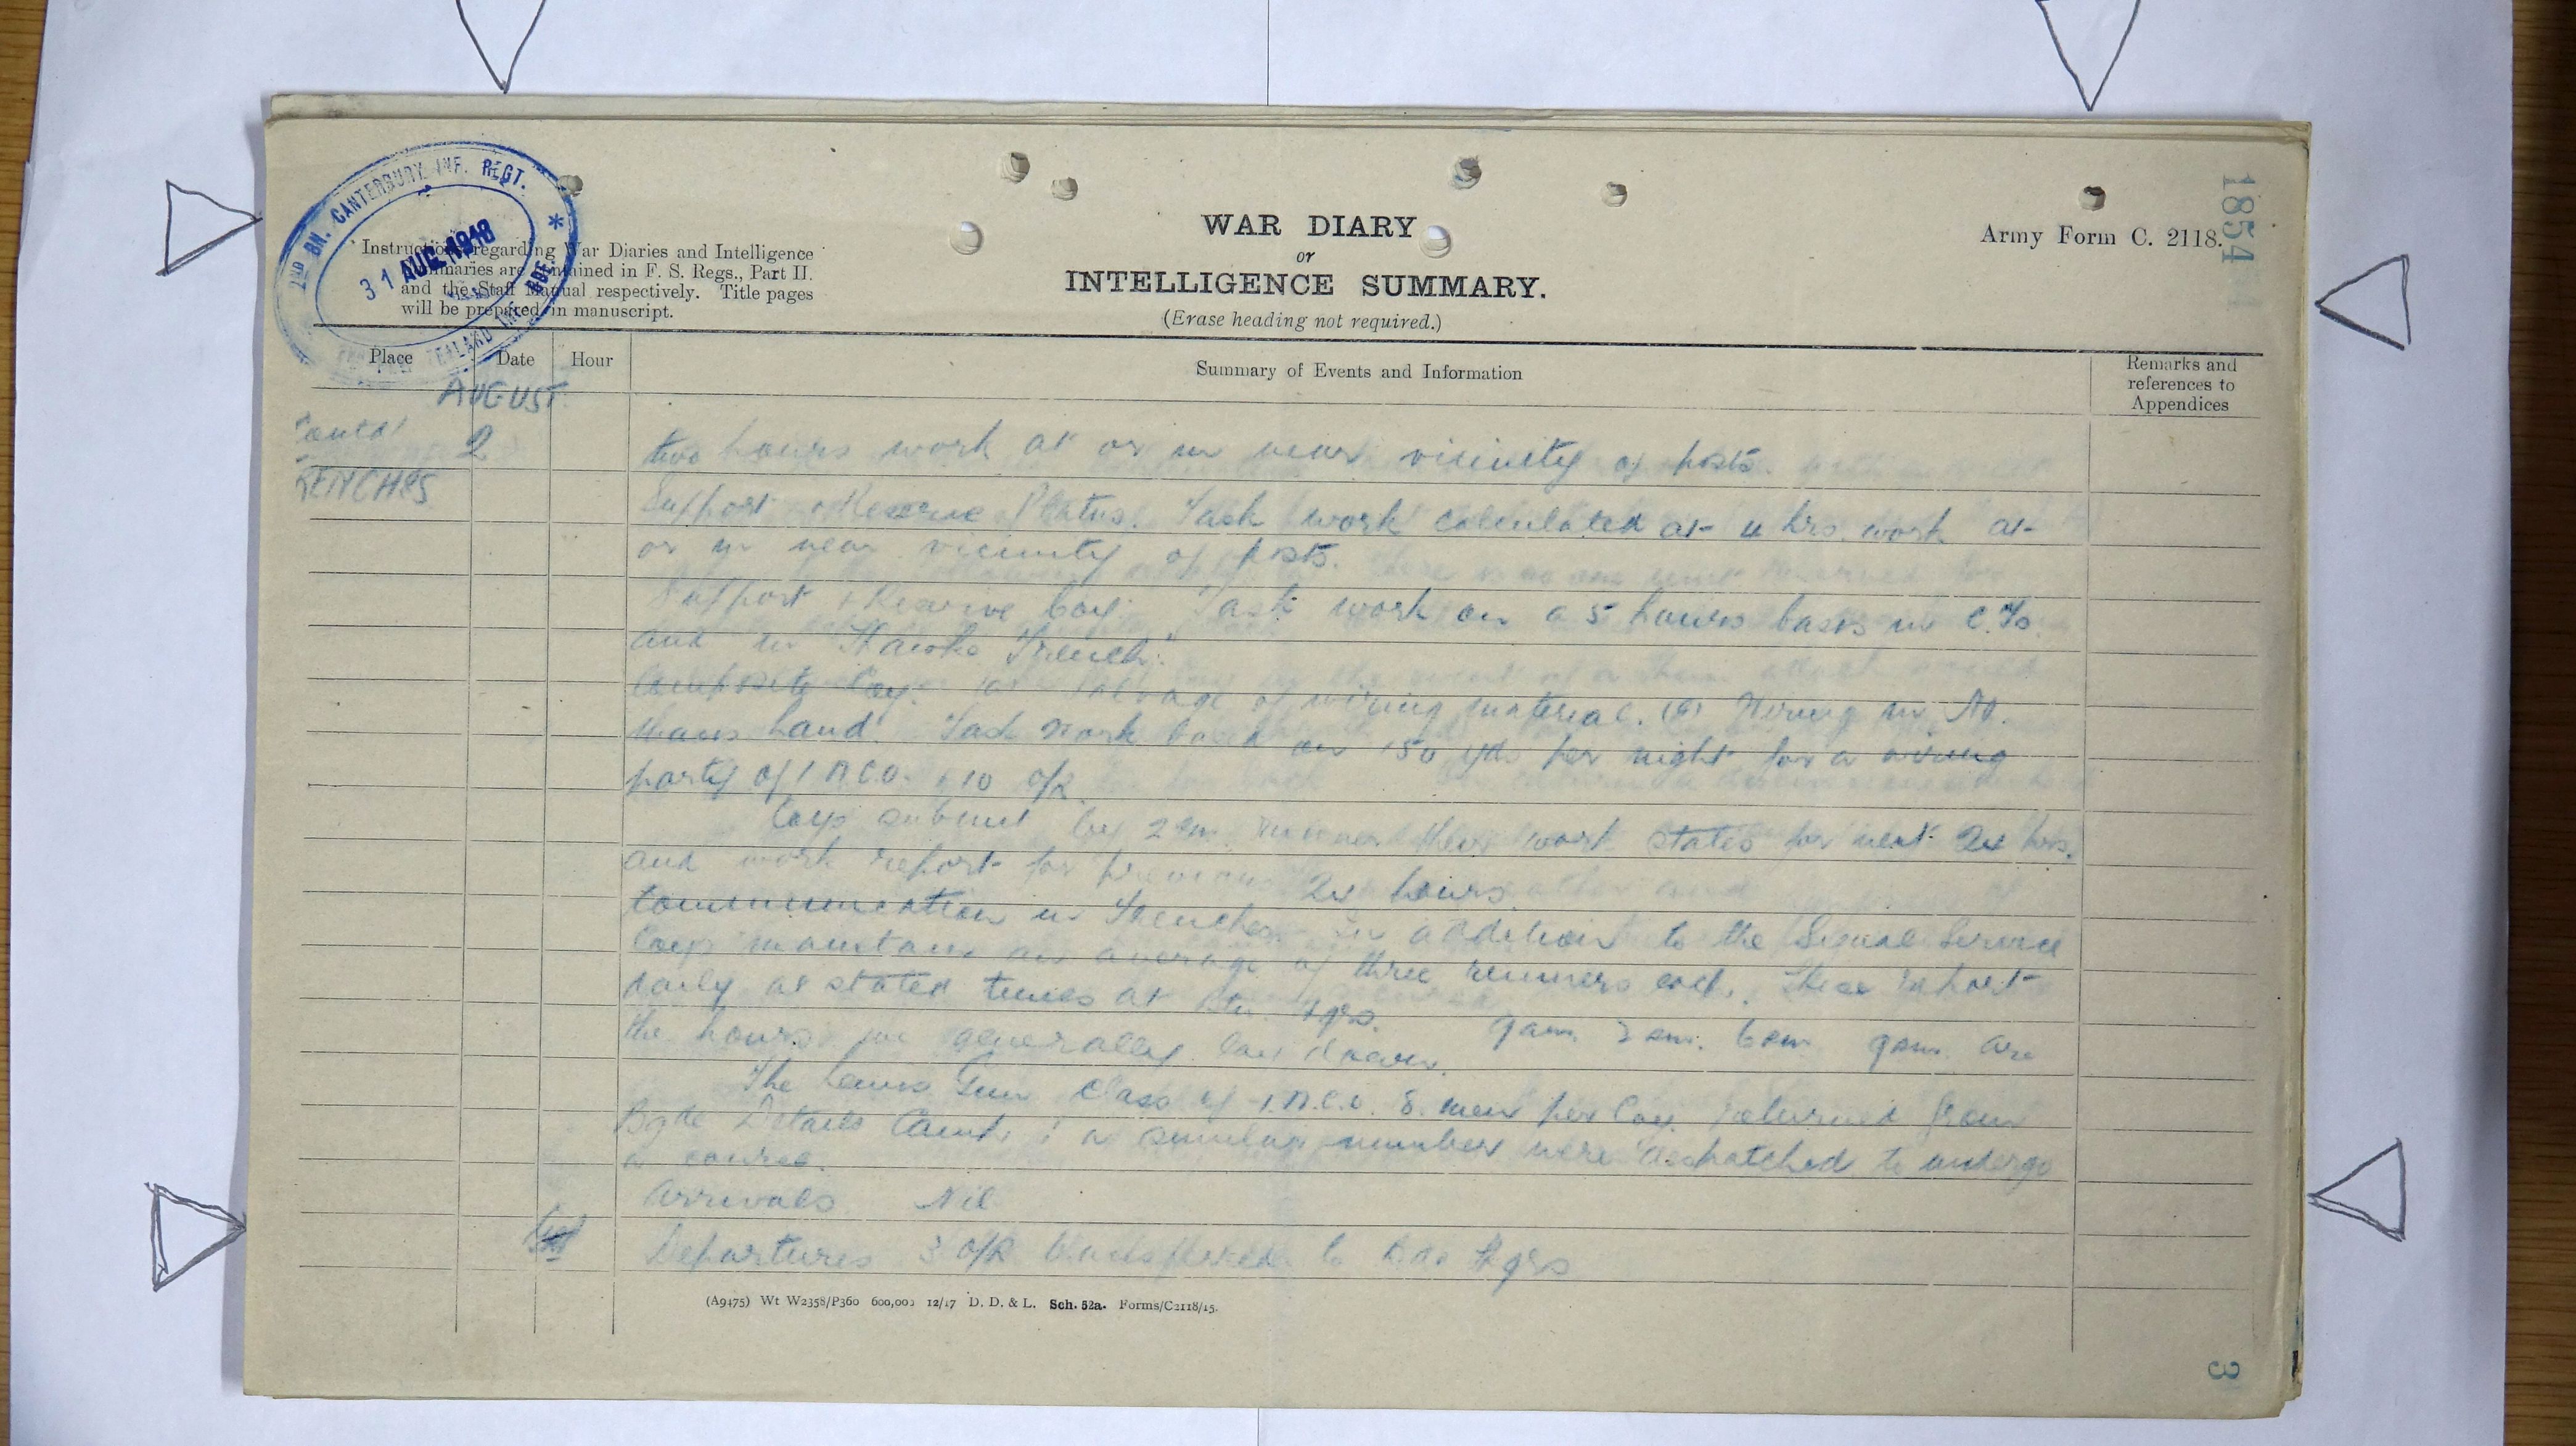 2ND BN. CANTERBURY INF. REGT.
31 AUG 1918
Instructions regarding War Diaries and Intelligence
Summaries are contained in F. S. Regs., Part II.
and the Staff Manual respectively. Title pages
will be prepared in manuscript.
WAR DIARY
or
INTELLIGENCE SUMMARY.
(Erase heading not required.)
Army Form C. 2118.
1854
Place
Date
Hour
Summary of Events and Information
Remarks and
references to
Appendices
AUGUST
Contd
2
RENCHES
two hours work at or in near vicinity of posts.
Support & Reserve Platns. Task work calculated at 4 hrs. work at
or in near vicinity of posts.
Support & Reserve Coy. Task work on a 5 hours basis in C.Ts
and in "Hawke Trench".
Composite Coy. Salvage of wiring material. Wiring in No.
Mans Land. Task work based on 150 yds per night for a wiring
party of 1 N.C.O. & 10 O/R.
Coys submit by 2 pm. their work states for next 24 hrs.
and work report for previous 24 hours.
Communication in Trenches. In addition to the Signal Service
Coys maintain an average of three runners each. These report
daily at stated times at Btn. Hqrs. 9 am. 6 pm 9 pm. are
the hours generally laid down.
The Lewis Gun Class of 1 N.C.O. 8 men per Coy. returned from
Bgde Details Camp; a similar number were despatched to undergo
a course.
Arrivals Nil
Departures 3 O/R transferred to Bde Hqrs
(A9475) Wt W2358/P360 600,000 12/17 D. D. & L. Sch. 52a. Forms/C2118/15.
3